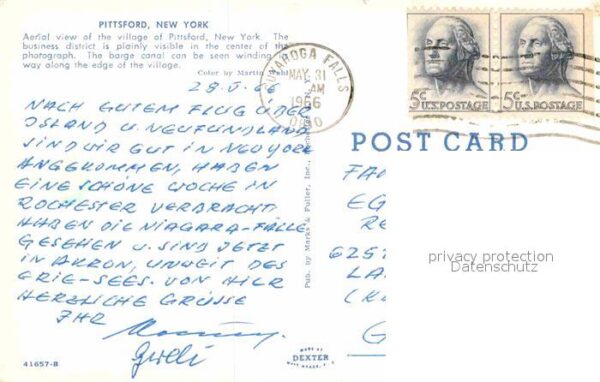 PITTSFORD, NEW YORK
Aerial view of the village of Pittsford, New York. The
business district is plainly visible in the center of the
photograph. The barge canal can be seen winding
way along the edge of the village.
Color by Martin
29.5.66
NACH GUTEM FLUG ÜBER
ISLAND U. NEUFUNDLAND
SIND WIR GUT IN NEW YORK
ANGEKOMMEN, HABEN
EINE SCHÖNE WOCHE IN
ROCHESTER VERBRACHT.
HABEN DIE NIAGARA-FÄLLE
GESEHEN U. SIND JETZT
IN AKRON, UNWEIT DES
ERIE-SEES. VON HIER
HERZLICHE GRÜSSE
IHR
41657-B
Pub. by Marks & Fuller, Inc., Rochester, N.Y.
MADE BY
DEXTER
CUYAHOGA FALLS
MAY 31
AM
1966
OHIO
5¢ U.S. POSTAGE
5¢ U.S. POSTAGE
POST CARD
FA
EG
RE
625
LA
(K
G
privacy protection
Datenschutz